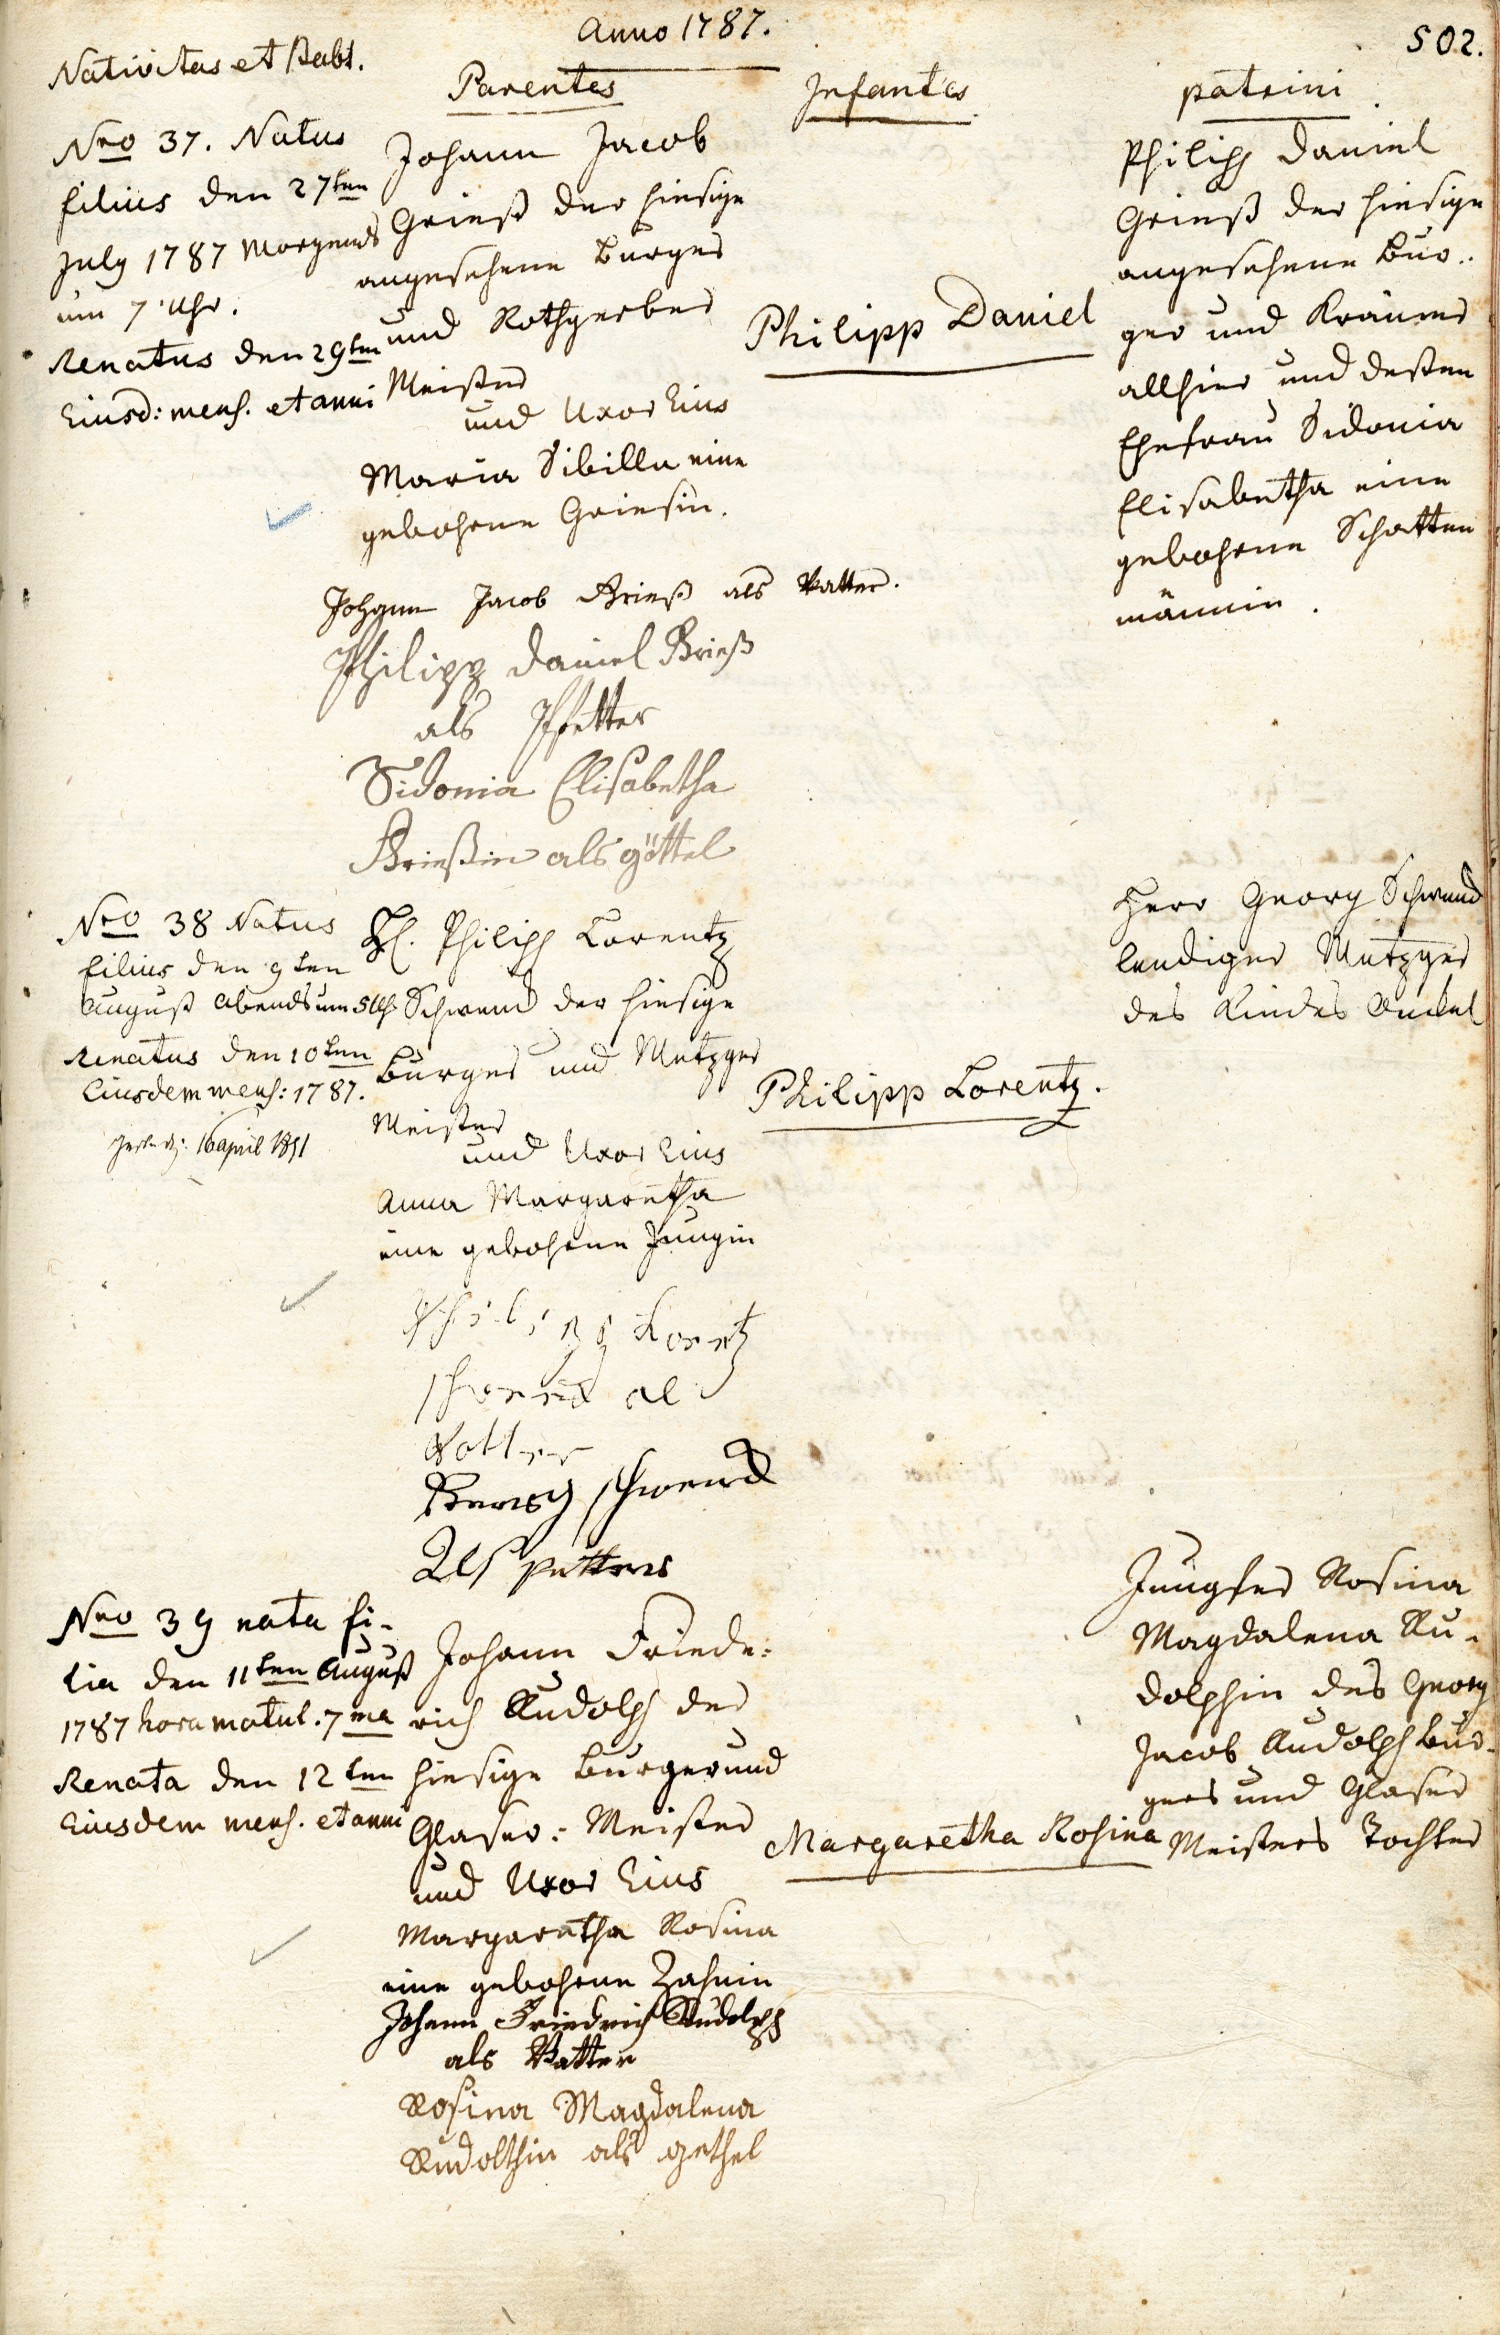 Anno 1787.
502.
Nativitas et Babt.
Parentes
Infantes
patrini
Nro 37. Natus
filius den 27ten
July 1787 Morgends
um 7 Uhr.
Renatus den 29ten
Eiusd: mens. et anni
Johann Jacob
Grieß der hiesige
angesehene Burger
und Rothgerber
Meister
und Uxor Eius
Maria Sibilla eine
gebohrne Griesin.
Philipp Daniel
Philipp Daniel
Grieß der hiesige
angesehene Bur..
ger und Krämer
allhier und deßen
Ehefrau Sidonia
Elisabetha eine
gebohrne Schatten
männin.
Johann Jacob Grieß als Vatter.
Philipp Daniel Grieß
als Pfetter
Sidonia Elisabetha
Grießin als göttel
Nro 38 Natus
filius den 9ten
August Abends um 5 Uh
Renatus den 10ten
Eiusdem mens: 1787.
16 april 1851
H. Philipp Lorentz
Schwend der hiesige
Burger und Metzger
Meister
und Uxor Eius
Anna Margaretha
eine gebohrne Jungin
Philipp Lorentz.
Herr Georg Schwend
lendiger Metzger
des Kindes Onckel
Philipp Loretz
schwend als
Vatter
Georg schwend
Als petter
Nro 39 nata fi-
lia den 11ten August
1787 hora matut. 7ma
Renata den 12ten
Eiusdem mens. et anni
Johann Friede:
rich Rudolph der
hiesige Burger und
Glaser: Meister
und Uxor Eius
Margaretha Rosina
eine gebohrne Zahnin
Margaretha Rosina
Jungfer Rosina
Magdalena Ru-
dolphin des Georg
Jacob Rudolph Bur-
gers und Glaser
Meisters Tochter
Johann Friedrich Rudolph
als Vatter
Rosina Magdalena
Rudolthin als gethel